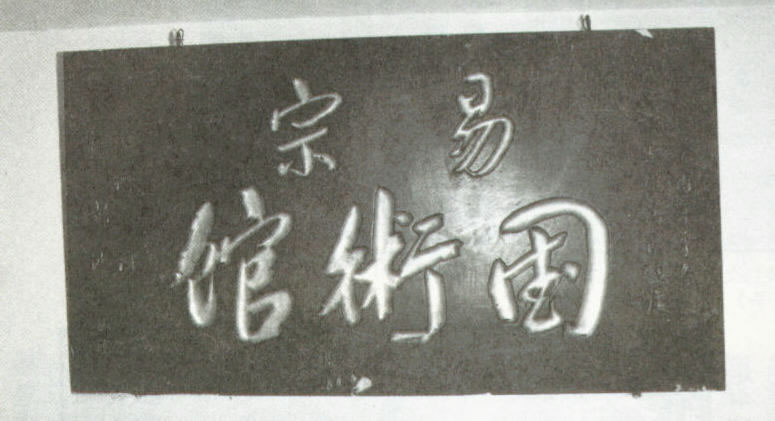 易宗
國術館